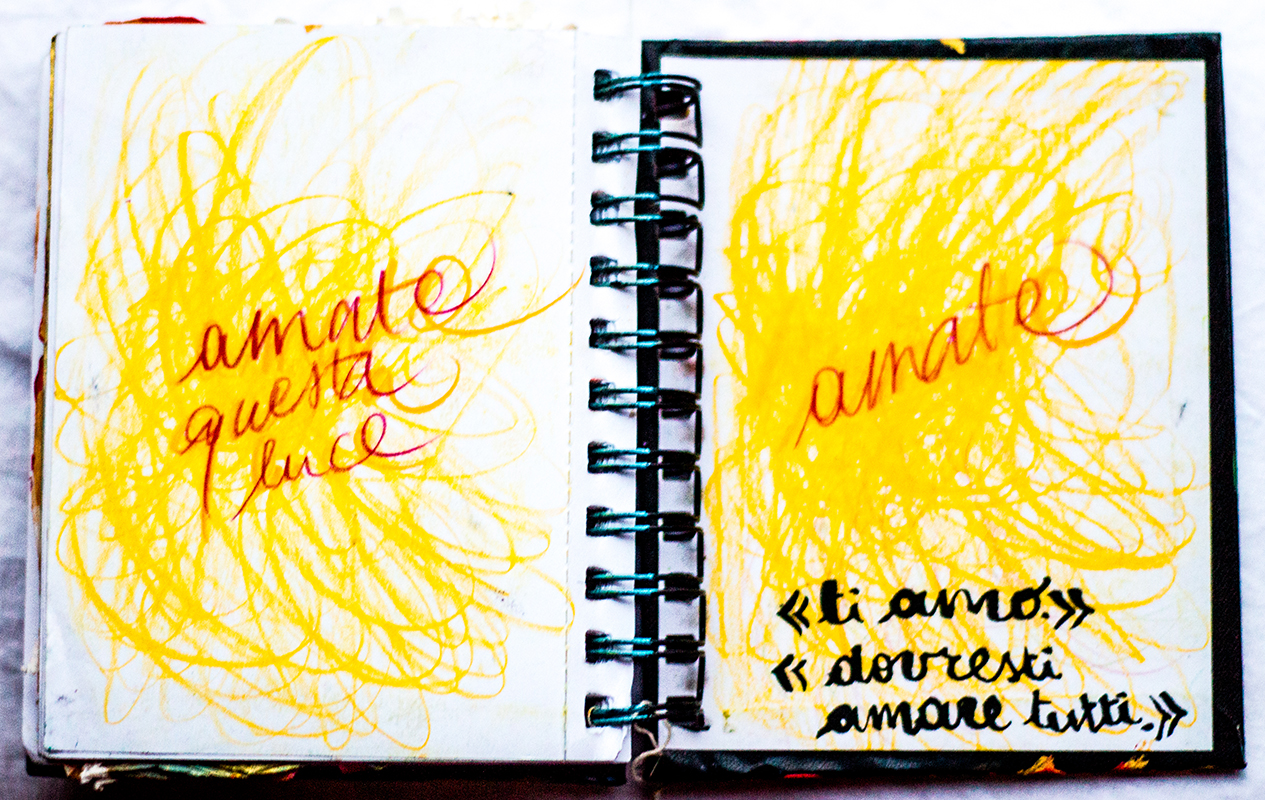 amate
questa
luce
amate
«ti amo.»
«dovresti
amare tutti.»